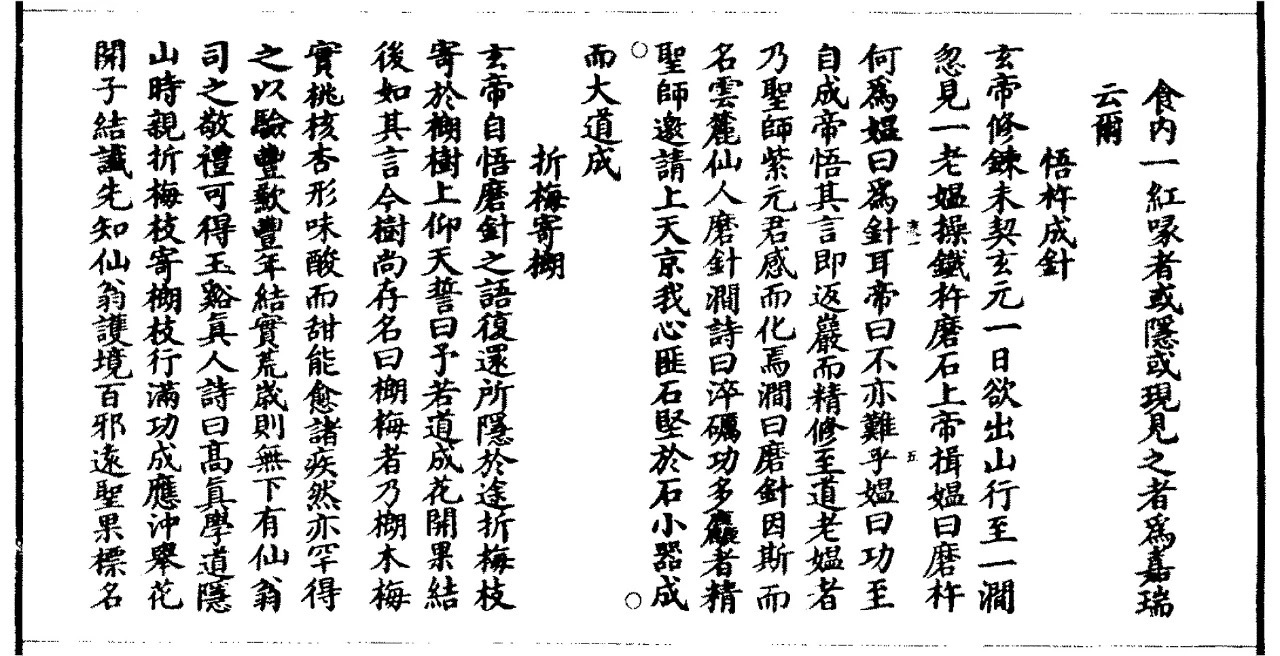 食内一紅喙者或隱或現見之者爲嘉瑞
云爾
悟杵成針
玄帝修鍊未契玄元一日欲出山行至一澗
忽見一老媪操鐵杵磨石上帝揖媪曰磨杵
何爲媪曰爲針耳帝曰不亦難乎媪曰功至
自成帝悟其言即返巖而精修至道老媪者
乃聖師紫元君感而化焉澗曰磨針因斯而
名雲麓仙人磨針澗詩曰淬礪功多麤者精
聖師邀請上天京我心匪石堅於石小器成
而大道成
折梅寄榔
玄帝自悟磨針之語復還所隱於途折梅枝
寄於榔樹上仰天誓曰予若道成花開果結
後如其言今樹尚存名曰榔梅者乃榔木梅
實桃核杏形味酸而甜能愈諸疾然亦罕得
之以驗豐歉豐年結實荒歲則無下有仙翁
司之敬禮可得玉谿眞人詩曰高眞學道隱
山時親折梅枝寄榔枝行滿功成應沖舉花
開子結讖先知仙翁護境百邪遠聖果標名